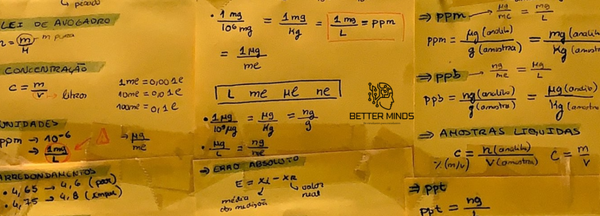 ↳ pesado
LEI DE AVOGADRO
n = m/M → m pura
CONCENTRAÇÃO
C = m/v → litros
1 mℓ = 0,001 ℓ
10 mℓ = 0,01 ℓ
100 mℓ = 0,1 ℓ
UNIDADES
ppm → 10⁻⁶
→ 1mg/L
→ μg/mℓ
ARREDONDAMENTOS
• 4,65 → 4,6 (par)
• 4,75 → 4,8 (ímpar)
• 1 mg/10⁶ mg = 1 mg/Kg = 1 mg/L = ppm
= 1 μg/mℓ
L mℓ μℓ nℓ
• 1 μg/10⁶ μg = μg/Kg = ng/g
• μg/L = ng/mℓ
⇒ ERRO ABSOLUTO
E = xi - xv
média das medições
valor real
BETTER MINDS
⇒ ppm → μg/mℓ = mg/L
ppm = μg (analito)/g (amostra) = mg (analito)/Kg (amostra)
⇒ ppb → ng/mℓ = μg/L
ppb = ng (analito)/g (amostra) = μg (analito)/Kg (amostra)
⇒ AMOSTRAS LÍQUIDAS
C = n (analito)/V (amostra) C = m/V
% (m/v)
⇒ ppt
ppt = ng/L